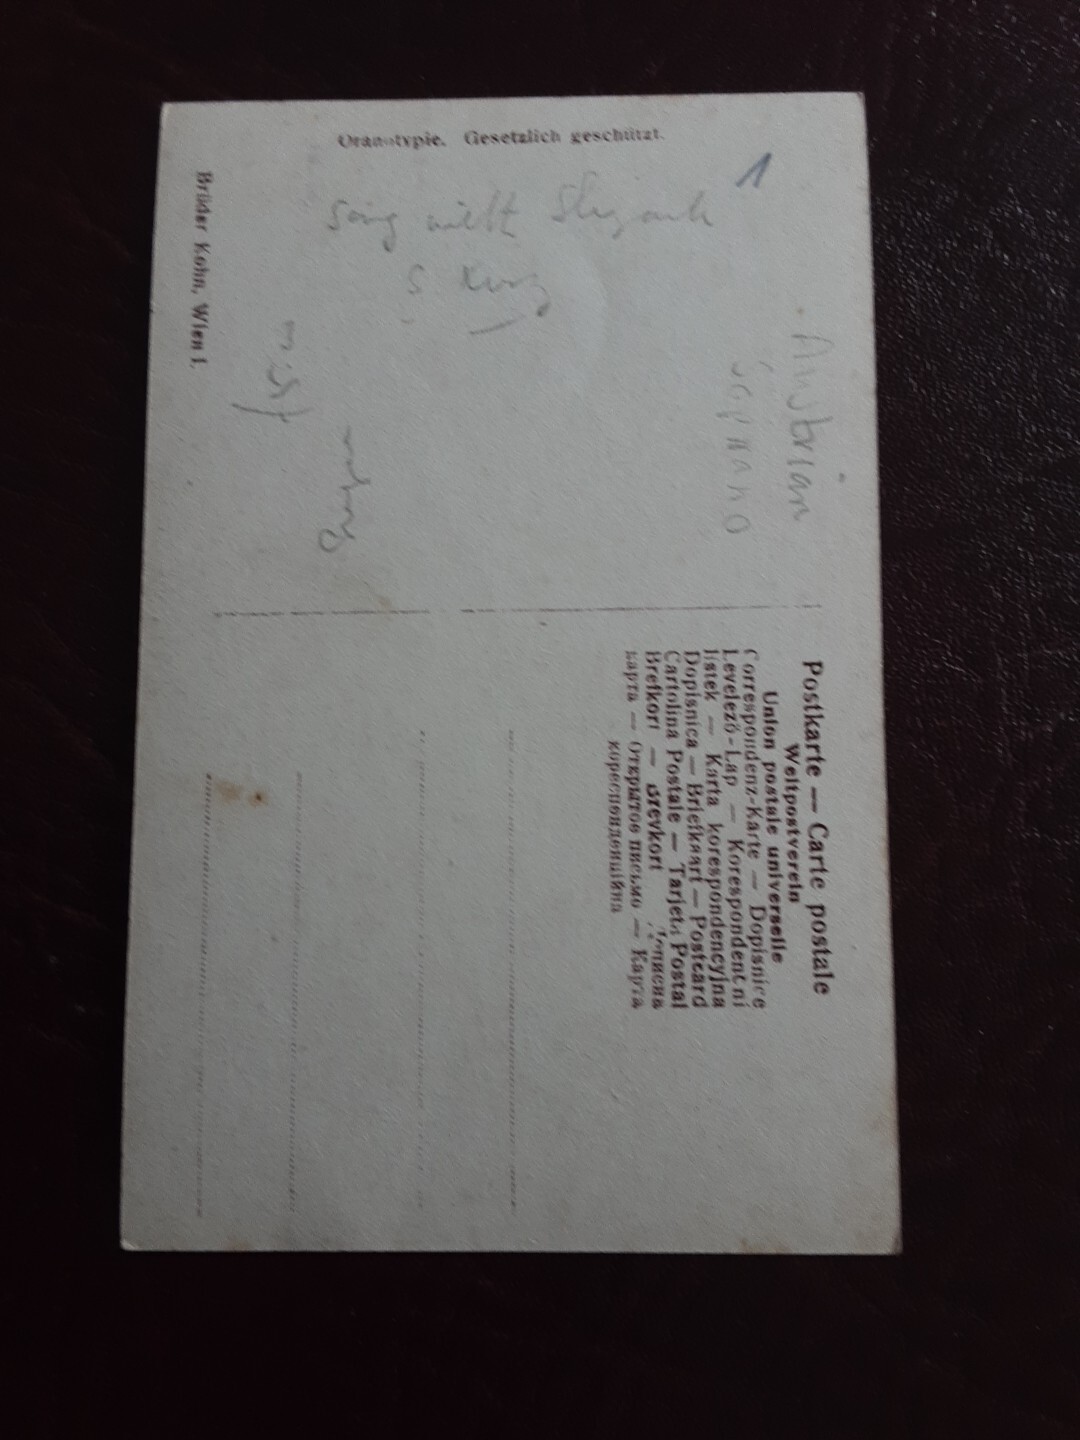 Granotypie. Gesetzlich geschützt.
1
Sang with
S. Kurz
Brüder Kohn, Wien I.
Austrian
soprano
Postkarte — Carte postale
Weltpostverein
Union postale universelle
Correspondenz-Karte — Dopisnice
Levelező-Lap — Korespondentní
lístek — Karta korespondencyjna
Dopisnica — Briefkaart — Postcard
Cartolina Postale — Tarjeta Postal
Brefkort — Brevkort
карта — Открытое письмо — Карта
кореспонденційна